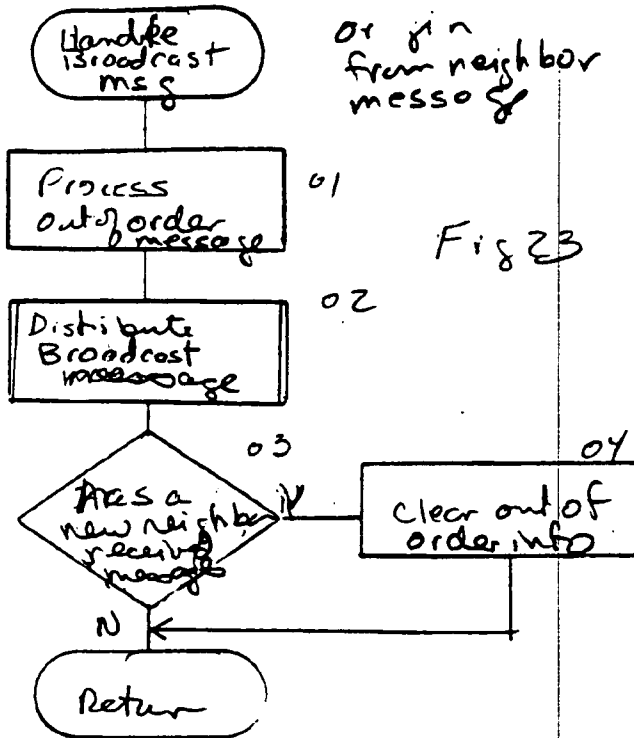 Handle
Broadcast
msg
origin
from neighbor
message
Process
out of order
message
01
Fig 23
Distribute
Broadcast
message
02
Has a
new neighbor
received
message
03
Y
04
clear out of
order info
N
Return